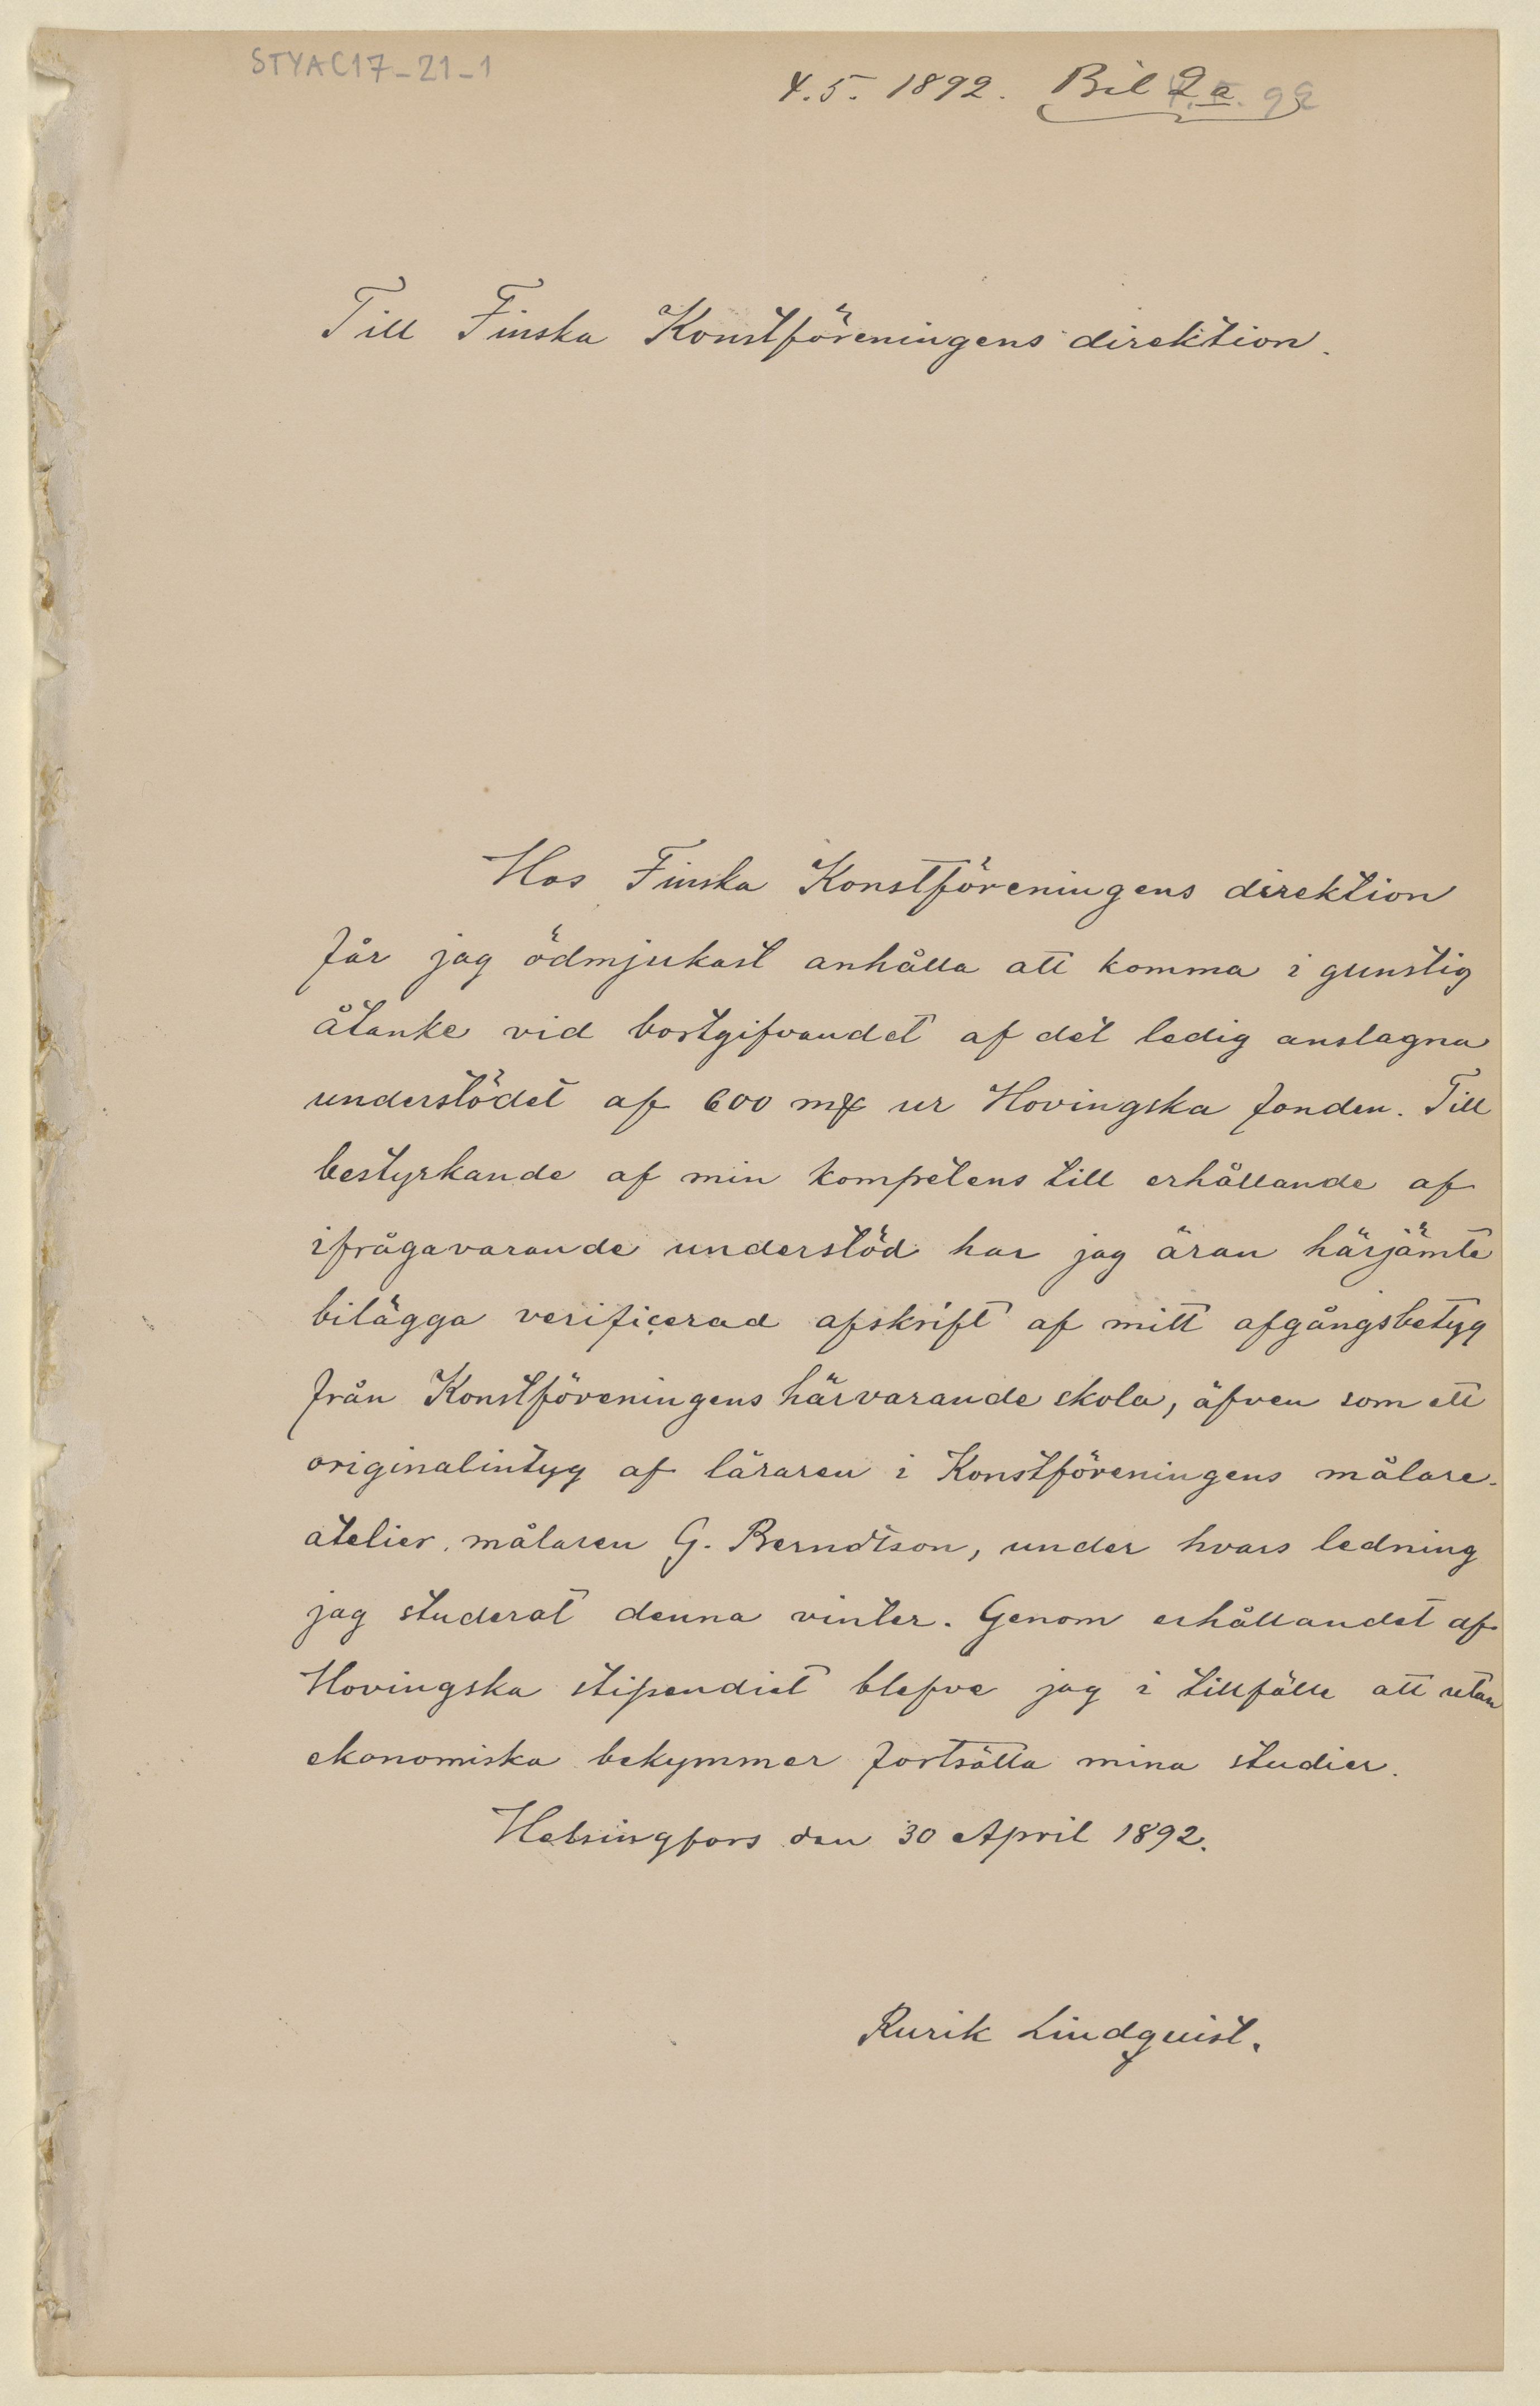 STYAC17-21-1
4.5. 1892. Bil 2 a
Till Finska Konstföreningens direktion.
Hos Finska Konstföreningens direktion
får jag ödmjukast anhålla att komma i gunstig
åtanke vid bortgifvandet af det ledig anslagna
understödet af 600 mk ur Hovingska fonden. Till
bestyrkande af min kompetens till erhållande af
ifrågavarande understöd har jag äran härjämte
bilägga verificerad afskrift af mitt afgångsbetyg
från Konstföreningens härvarande skola, äfven som ett
originalintyg af läraren i Konstföreningens målare-
atelier, målaren G. Berndtson, under hvars ledning
jag studerat denna vinter. Genom erhållandet af
Hovingska stipendiet blefve jag i tillfälle att utan
ekonomiska bekymmer fortsätta mina studier.
Helsingfors den 30 April 1892.
Rurik Lindquist.